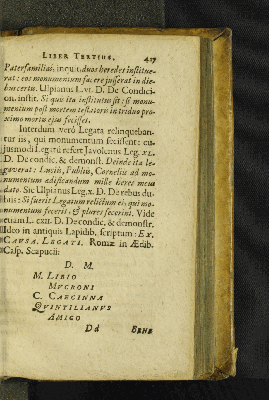 LIBER TERTIUS. 417
Paterfamilias, inquit, duos heredes institue-
rat: eos monumentum facere jusserat in die-
bus certis. Ulpianus L. VI. D. De Condici-
on. instit. Si quis ita institutus sit: si monu-
mentum post mortem testatoris in triduo pro-
ximo mortis ejus fecisset.
Interdum verò Legata relinqueban-
tur iis, qui monumentum fecissent: cu-
jusmodi Legati refert Javolenus Leg. XL.
D. De condic. & demonstr. Deinde ita le-
gaverat: Lucio, Publio, Cornelio ad mo-
numentum ædificandum mille heres meus
dato. Sic Ulpianus Leg. X. D. De rebus du-
biis: Si fuerit Legatum relictum ei, qui mo-
numentum fecerit, & plures fecerint. Vide
etiam L. CXII. D. De condic. & demonstr.
Ideo in antiquis Lapidib. scriptum: EX.
CAUSA. LEGATI. Romæ in Ædib.
Casp. Scapucii:
D. M.
M. LIBIO
MUCRONI
C. CAECINNA
QUINTILIANUS
AMICO
Dd BENE